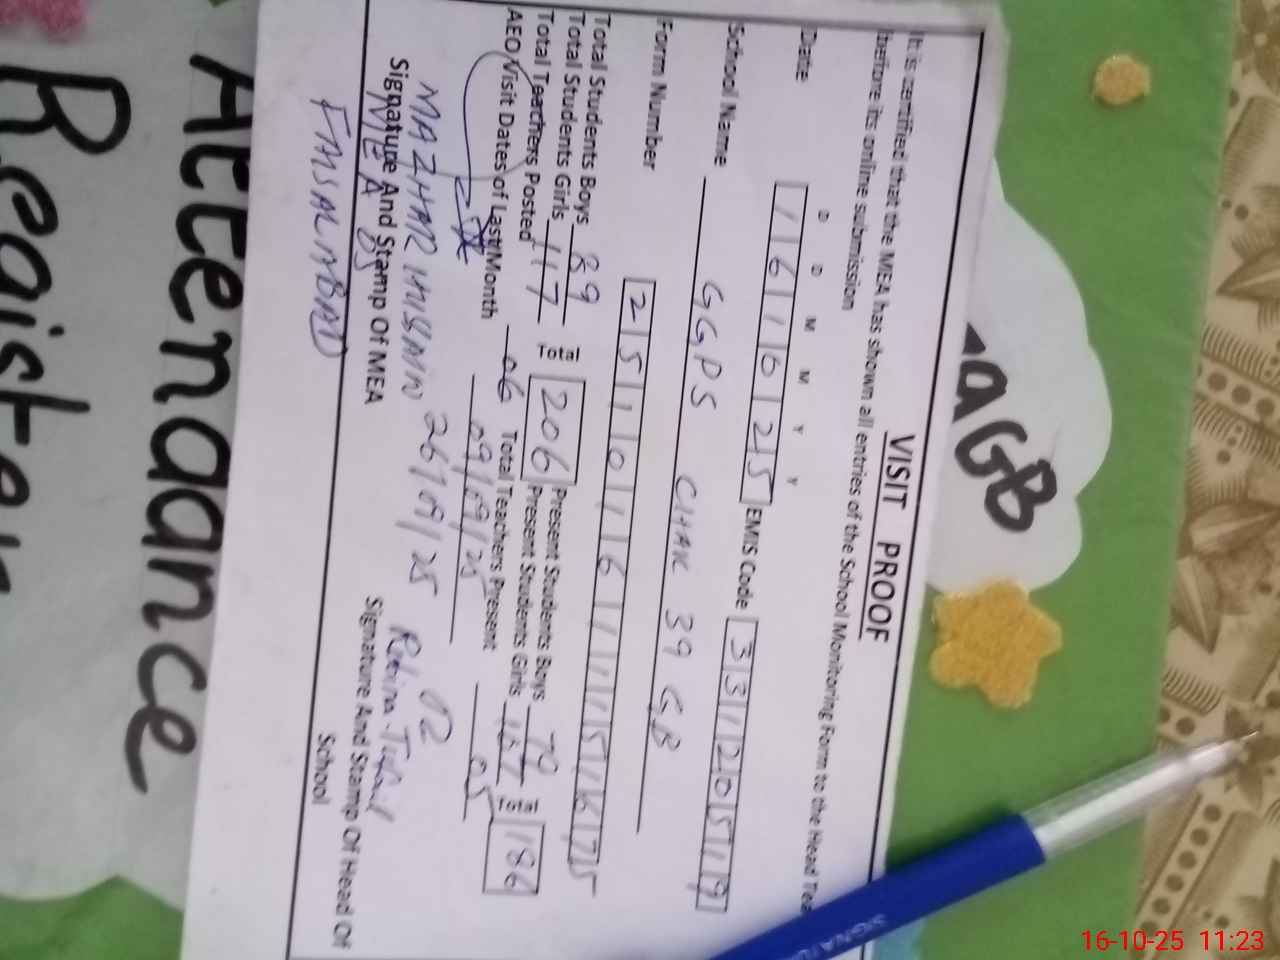 VISIT PROOF
It is certified that the MEA has shown all entries of the School Monitoring Form to the Head Tea
before its online submission
D D M M Y Y
Date 16 10 25 EMIS Code 33120519
School Name GGPS CHAK 39 GB
Form Number
Total Students Boys 89 Present Students Boys 79
Total Students Girls 117 206 Present Students Girls 107 186
Total Teachers Posted 06 Total Teachers Present 05
AEO Visit Dates of Last Month 09/09/25
26/09/25
MAZHAR HUSSAIN
Signature And Stamp Of MEA
MEA
FAISALABAD
Signature And Stamp Of Head Of
School
AGB
Attendance
Register
SIGNATU
16-10-25 11:23